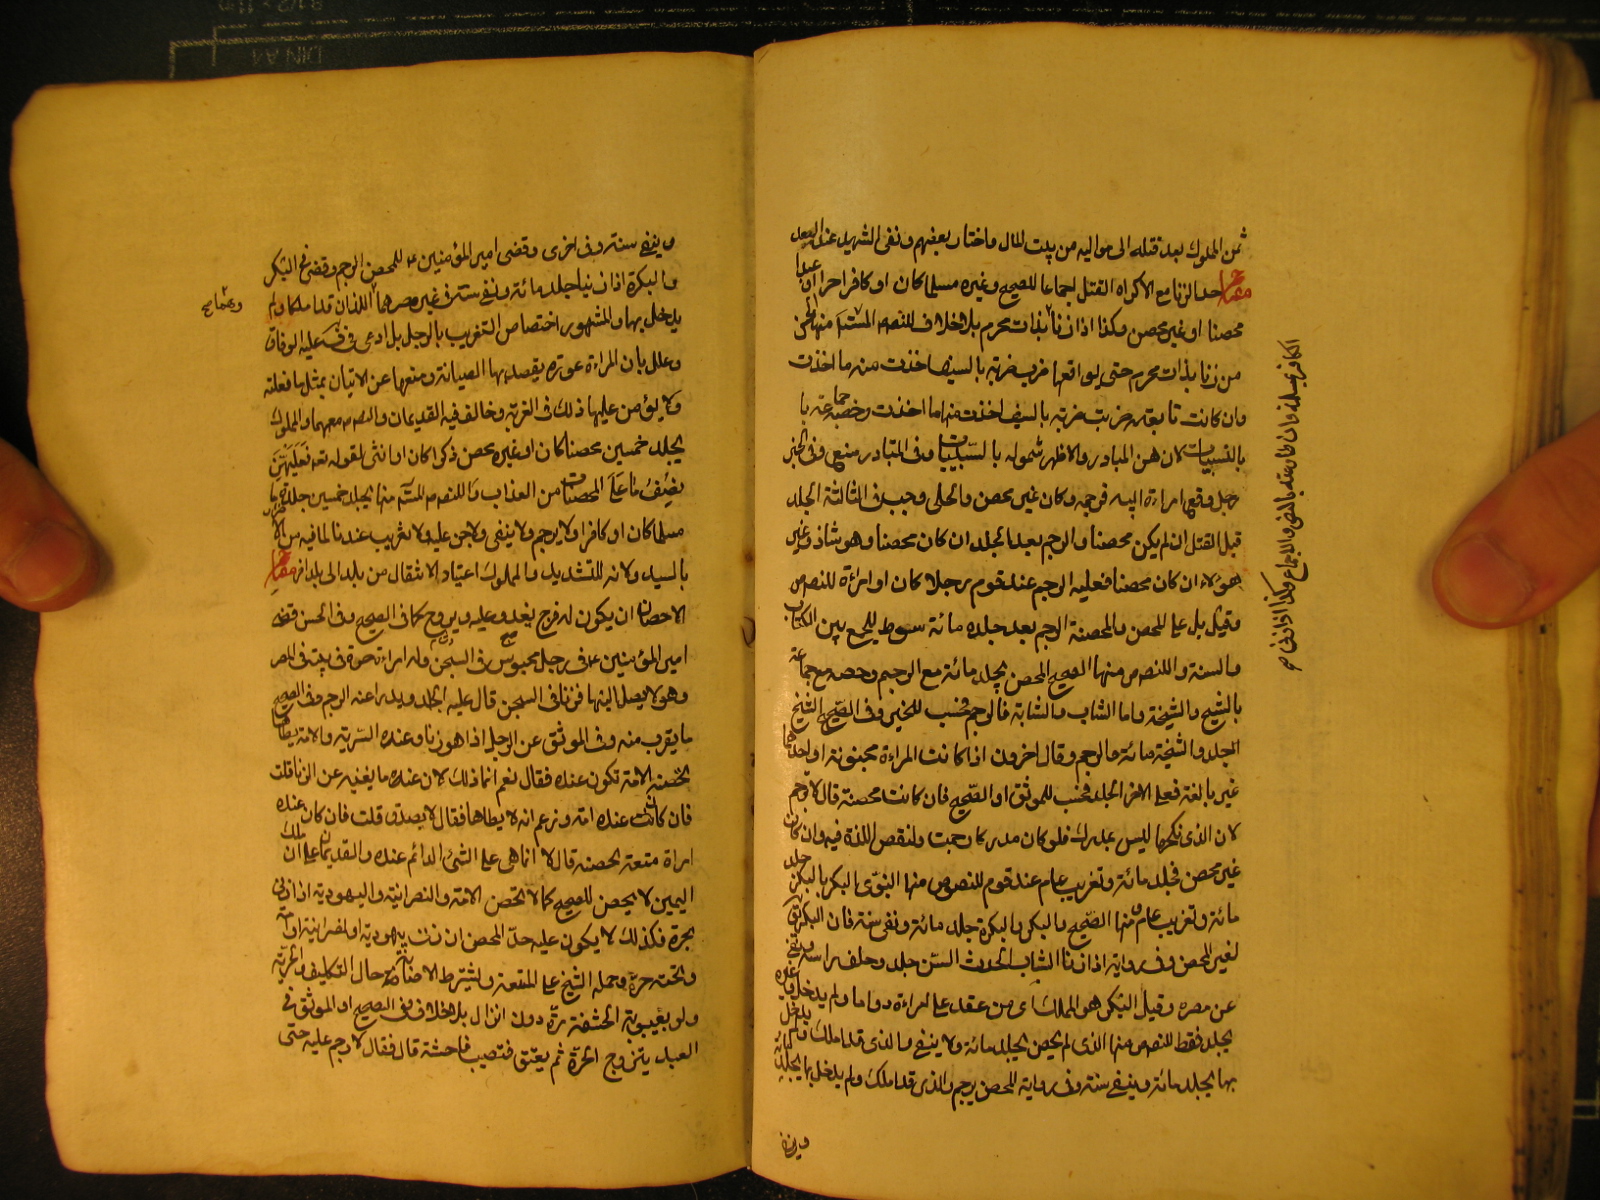 ثمن المملوك بعد قتله الى مواليه من بيت المال واختار بعضهم ونفى الشهيد عنه البعد
مفتاح حد الزنا مع الاكراه القتل اجماعا للصحيح وغيره مسلما كان او كافر احرا او عبدا
محصنا او غير محصن وكذا اذا زنا بذات محرم بلا خلاف للنصوص منها الحسن
من زنا بذات محرم حتى يواقعها ضرب ضربة بالسيف اخذت منه ما اخذت
وان كانت تابعته ضربت ضربة بالسيف اخذت منها ما اخذت وخصه جماعة با
بالنسبيات لان هن المبادر والاظهر شموله بالسببيات وفى المتبادر منع وفى الخبر
رجل وقع امراءة ابيه فرجمه وكان غير محصن والحلى وجب فى الثلاثة الجلد
قبل القتل ان لم يكن محصنا والرجم بعد الجلد ان كان محصنا وهو شاذ وغير
هؤلاء ان كان محصنا فعليه الرجم عند قوم رجلا كان او امراءة للنصوص
وقيل بل على المحصن والمحصنة الرجم بعد جلده مائة سوط للجمع بين الكتاب
والسنة وللنصوص منها الصحيح المحصن يجلد مائة مع الرجم وخصه مع جماعة
بالشيخ والشيخة واما الشاب والشابة فالرجم فحسب للخبر وفى الصحيح الشيخ
الجلد والشيخة مائة والرجم وقال اخرون اذا كانت المراءة مجنونة او احدهما
غير بالغة فعلى الاخر الجلد فحسب للموثق او الصحيح فان كانت محصنة قال لا ترجم
لان الذى نكحها ليس بمدرك فلو كان مدركا رجمت ولنقص اللذة فيه وان كان
غير محصن فجلد مائة وتغريب عام عند قوم للنصوص منها النبوى البكر بالبكر جلد
مائة وتغريب عام ومنها الصحيح والبكر والبكرة جلد مائة ونفى سنة فان البكر
لغير المحصن وفى رواية اذا زنا الشاب الحدث السن جلد وحلق راسه ونفى
عن مصره وقيل البكر هو المملك اى من عقد على امراءة دواما ولم يدخل وغيره
يجلد فقط للنصوص منها الذى لم يحصن يجلد مائة ولا ينفى والذى قد املك ولم يدخل
بها يجلد مائة وينفى سنة وفى رواية المحصن يرجم والذى قد املك ولم يدخل بها يجلد مائة
وينفى
الكافر بمسلمة وان طاوعته بالنص والاجماع وكذا اذا زنى صح
وينفى سنة وفى اخرى وقضى امير المؤمنين ع للمحصن الرجم وقضى فى البكر
والبكرة اذا زنيا جلد مائة ونفى سنة فى غير مصرهما وهما اللذان قد املكا ولم
يدخل بها والمشهور اختصاص التغريب بالرجل بل ادعى فى ف عليه الوفاق
وعلل بان المراءة عورة يقصد بها الصيانة ومنعها عن الاتيان بمثل ما فعلته
ولا يؤمن عليها ذلك فى الغربة وخالف فيه القديمان والنصوص معهما والمملوك
يجلد خمسين محصنا كان او غير محصن ذكرا كان او انثى لقوله تعه فعليهن
نصف ما على المحصنات من العذاب وللنصوص منها يجلد خمسين جلدة
مسلما كان او كافرا ولا يرجم ولا ينفى ولا جز عليه ولا تغريب عندنا لما فيه من الاضرار
بالسيد ولانه للتشديد والمملوك اعتياد الانتقال من بلد الى بلد اخر مفتاح
الاحصان ان يكون له فرج يغدو عليه ويروح كما فى الصحيح وفى الحسن قضى
امير المؤمنين ع فى رجل محبوس فى السجن وله امراءة حرة فى بيته فى المصر
وهو لا يصل اليها فزنا فى السجن قال عليه الجلد ويدرا عنه الرجم وفى الصحيح
ما يقرب منه وفى الموثق عن الرجل اذا هو زنا وعنده السرية والامة يطأها
تحصنه الامة تكون عنده فقال نعم انما ذلك لان عنده ما يغنيه عن الزنا قلت
فان كانت عنده امة وزعم انه لا يطاها فقال لا يصدق قلت فان كان عنده
امراة متعة تحصنه قال لا انما هى على الشئ الدائم عنده والقديمان على ان ملك
اليمين لا يحصن للصحيح كما لا تحصن الامة والنصرانية واليهودية اذا زنى
بحرة فكذلك لا يكون عليه حد المحصن ان زنى بيهودية او نصرانية او امة
وتحته حرة وحمله الشيخ على المتعة ويشترط الاصابة مع حال التكليف والحرية
ولو بغيبوبة الحشفة مرة دون انزال بلا خلاف وفى الصحيح او الموثق فى
العبد يتزوج الحرة ثم يعتق فتصيب فاحشة قال فقال لا رجم عليه حتى